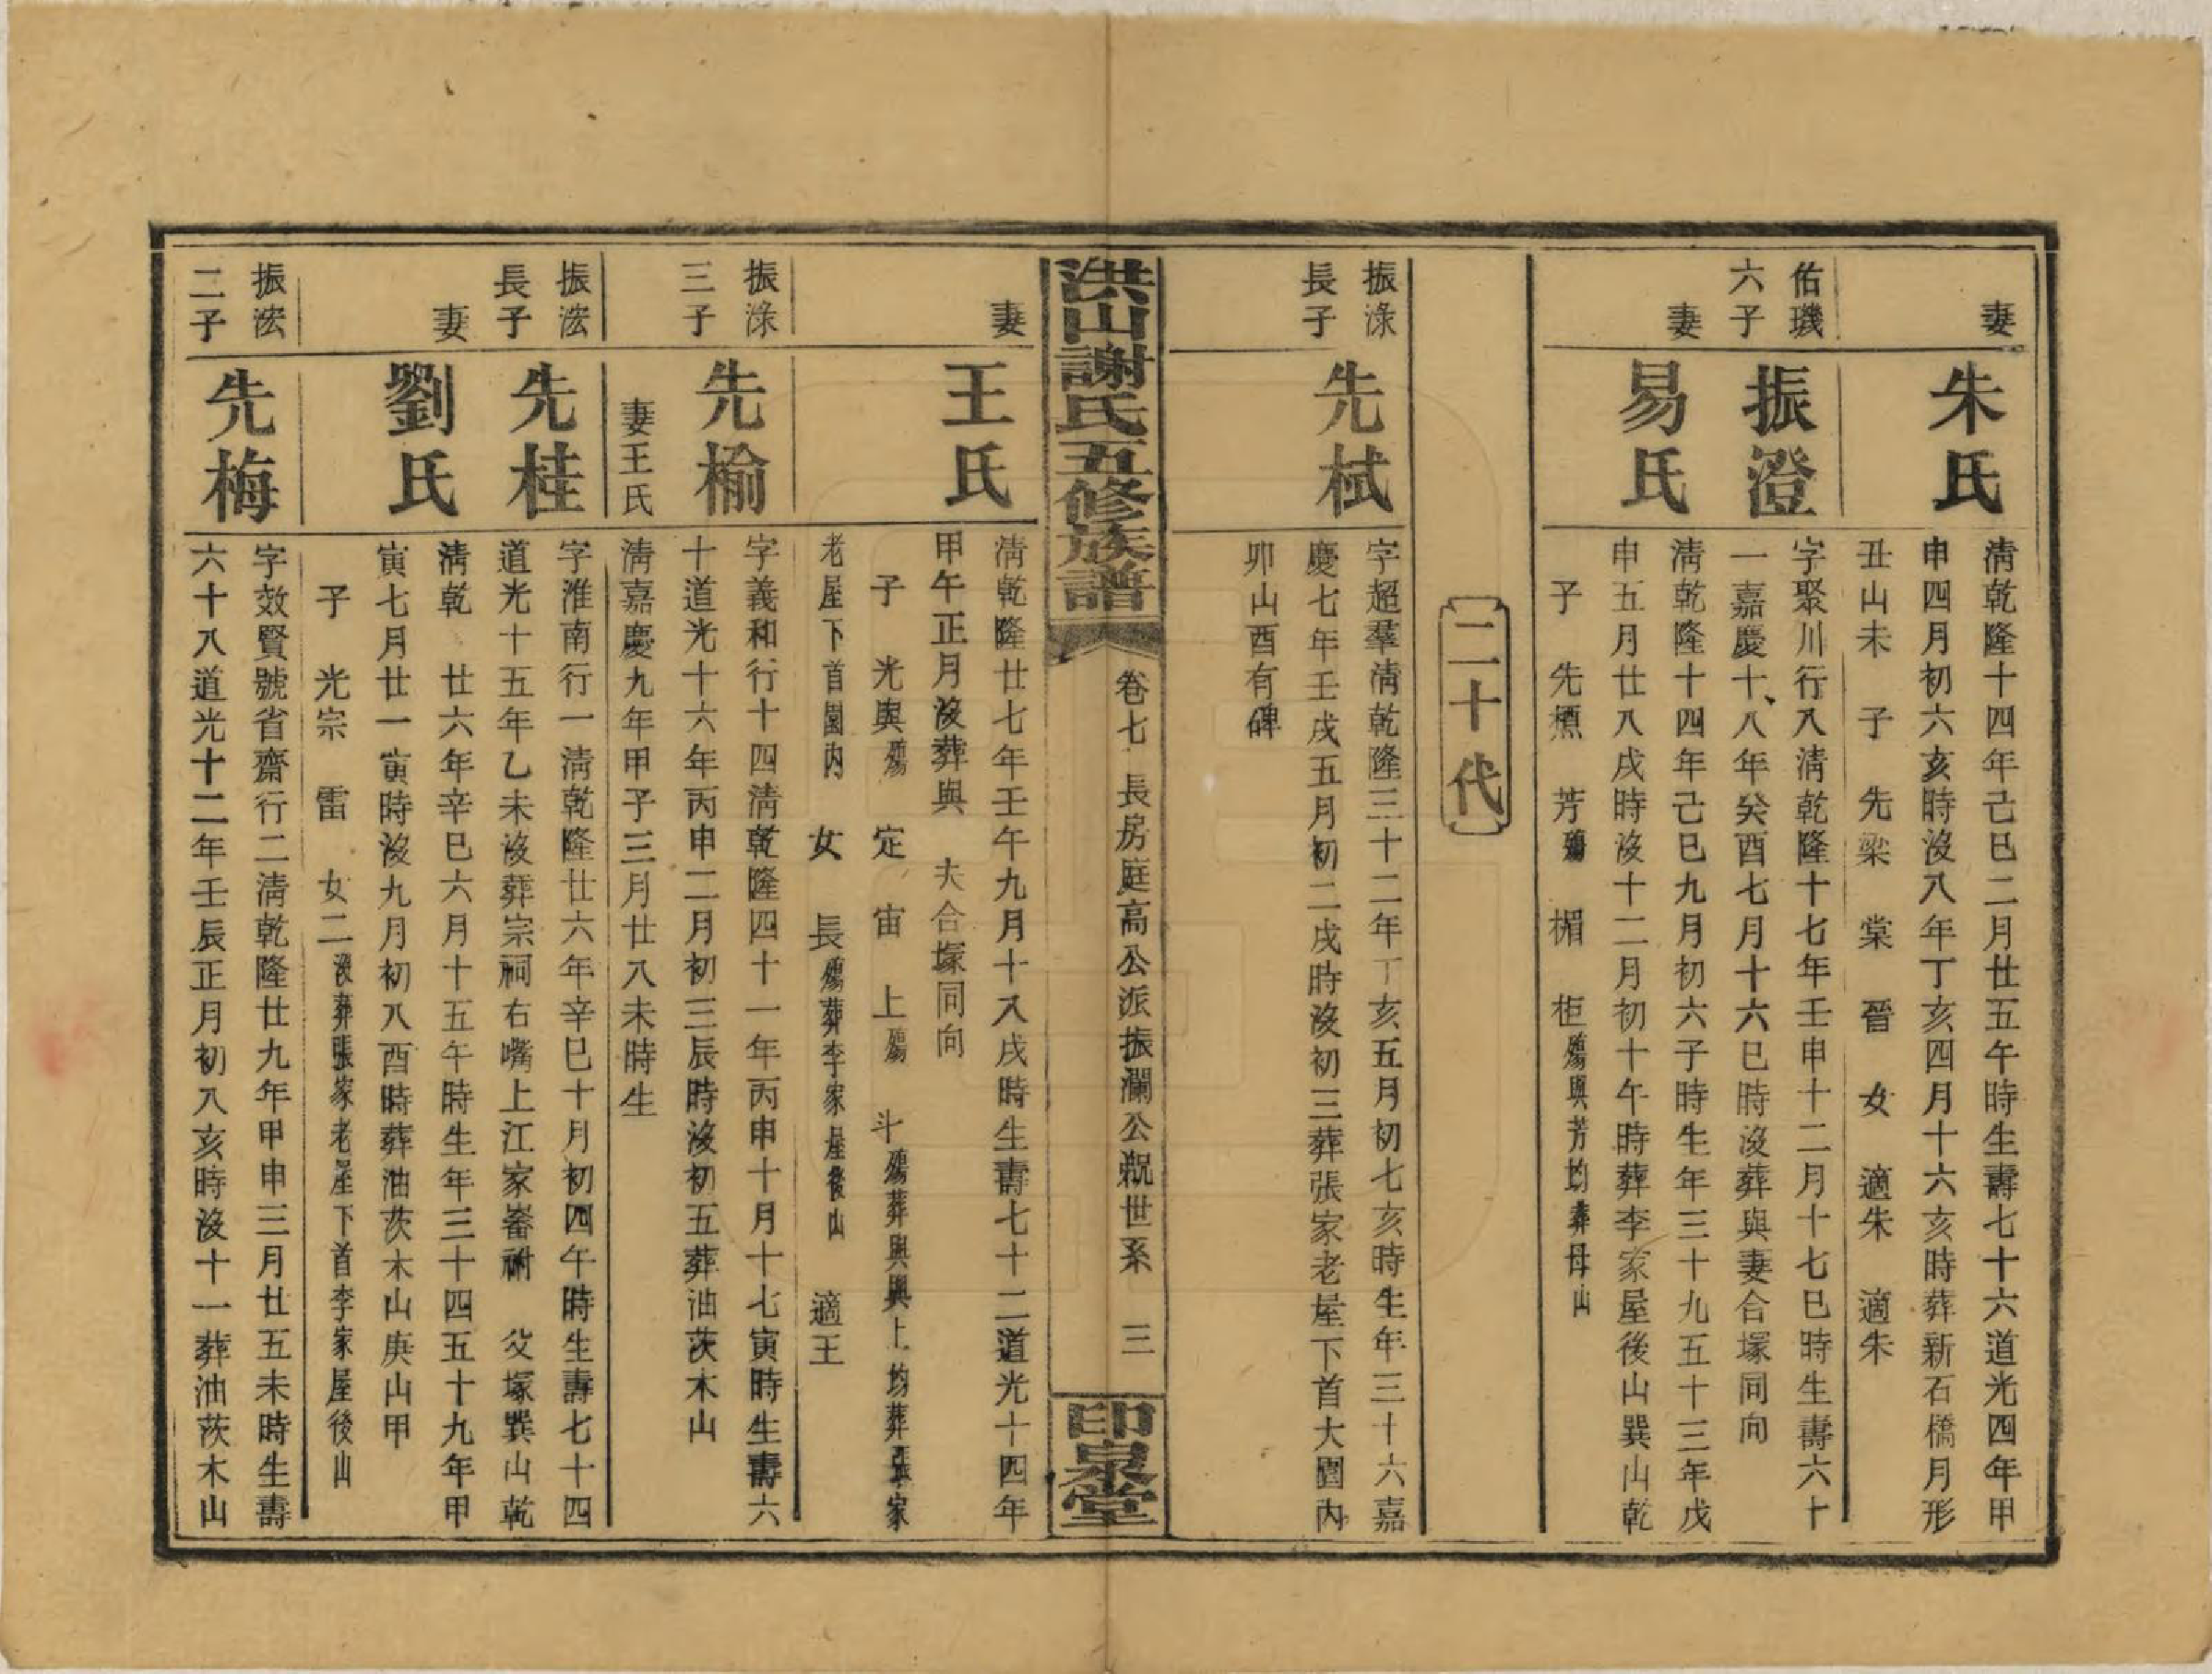 妻
朱氏
清乾隆十四年己巳二月廿五午時生壽七十六道光四年甲
申四月初六亥時沒八年丁亥四月十六亥時葬新石橋月形
丑山未 子 先梁 棠 晉 女 適朱 適朱
佑璣
六子
振澄
字聚川行八清乾隆十七年壬申十二月十七巳時生壽六十
一嘉慶十八年癸酉七月十六巳時沒葬與妻合塚同向
妻
易氏
清乾隆十四年己巳九月初六子時生年三十九五十三年戊
申五月廿八戌時沒十二月初十午時葬李家屋後山巽山乾
子 先槱 芳殤 楣 柜殤與芳均葬母山
二十代
振淥
長子
先栻
字超羣清乾隆三十二年丁亥五月初七亥時生年三十六嘉
慶七年壬戌五月初二戌時沒初三葬張家老屋下首大園內
卯山酉有碑
洪山謝氏五修族譜
卷七 長房庭高公派振瀾公覜世系 三
印泉堂
妻
王氏
清乾隆廿七年壬午九月十八戌時生壽七十二道光十四年
甲午正月沒葬與 夫合塚同向
子 光輿殤 定 宙 上殤 斗殤葬與輿上均葬張家
老屋下首園內 女 長殤葬李家屋後山 適王
振淥
三子
先榆
字義和行十四清乾隆四十一年丙申十月十七寅時生壽六
十道光十六年丙申二月初三辰時沒初五葬油茨木山
妻王氏
清嘉慶九年甲子三月廿八未時生
振浤
長子
先桂
字淮南行一清乾隆廿六年辛巳十月初四午時生壽七十四
道光十五年乙未沒葬宗祠右嘴上江家崙祔 父塚巽山乾
妻
劉氏
清乾 廿六年辛巳六月十五午時生年三十四五十九年甲
寅七月廿一寅時沒九月初八酉時葬油茨木山庚山甲
子 光宗 雷 女二沒葬張家老屋下首李家屋後山
振浤
二子
先梅
字效賢號省齋行二清乾隆廿九年甲申三月廿五未時生壽
六十八道光十二年壬辰正月初八亥時沒十一葬油茨木山